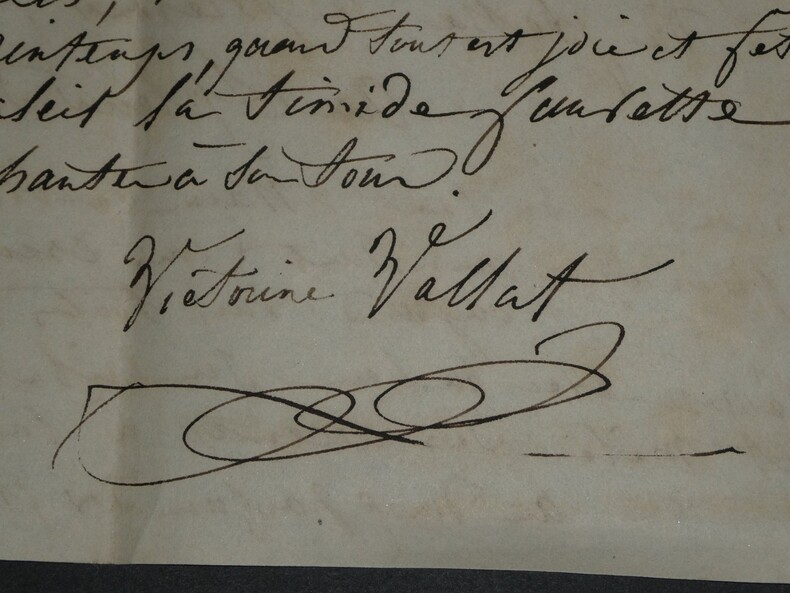 intemps, quand tout est joie et fêt
oleil la timide fauvette
hanter à son tour.
Victorine Vallat